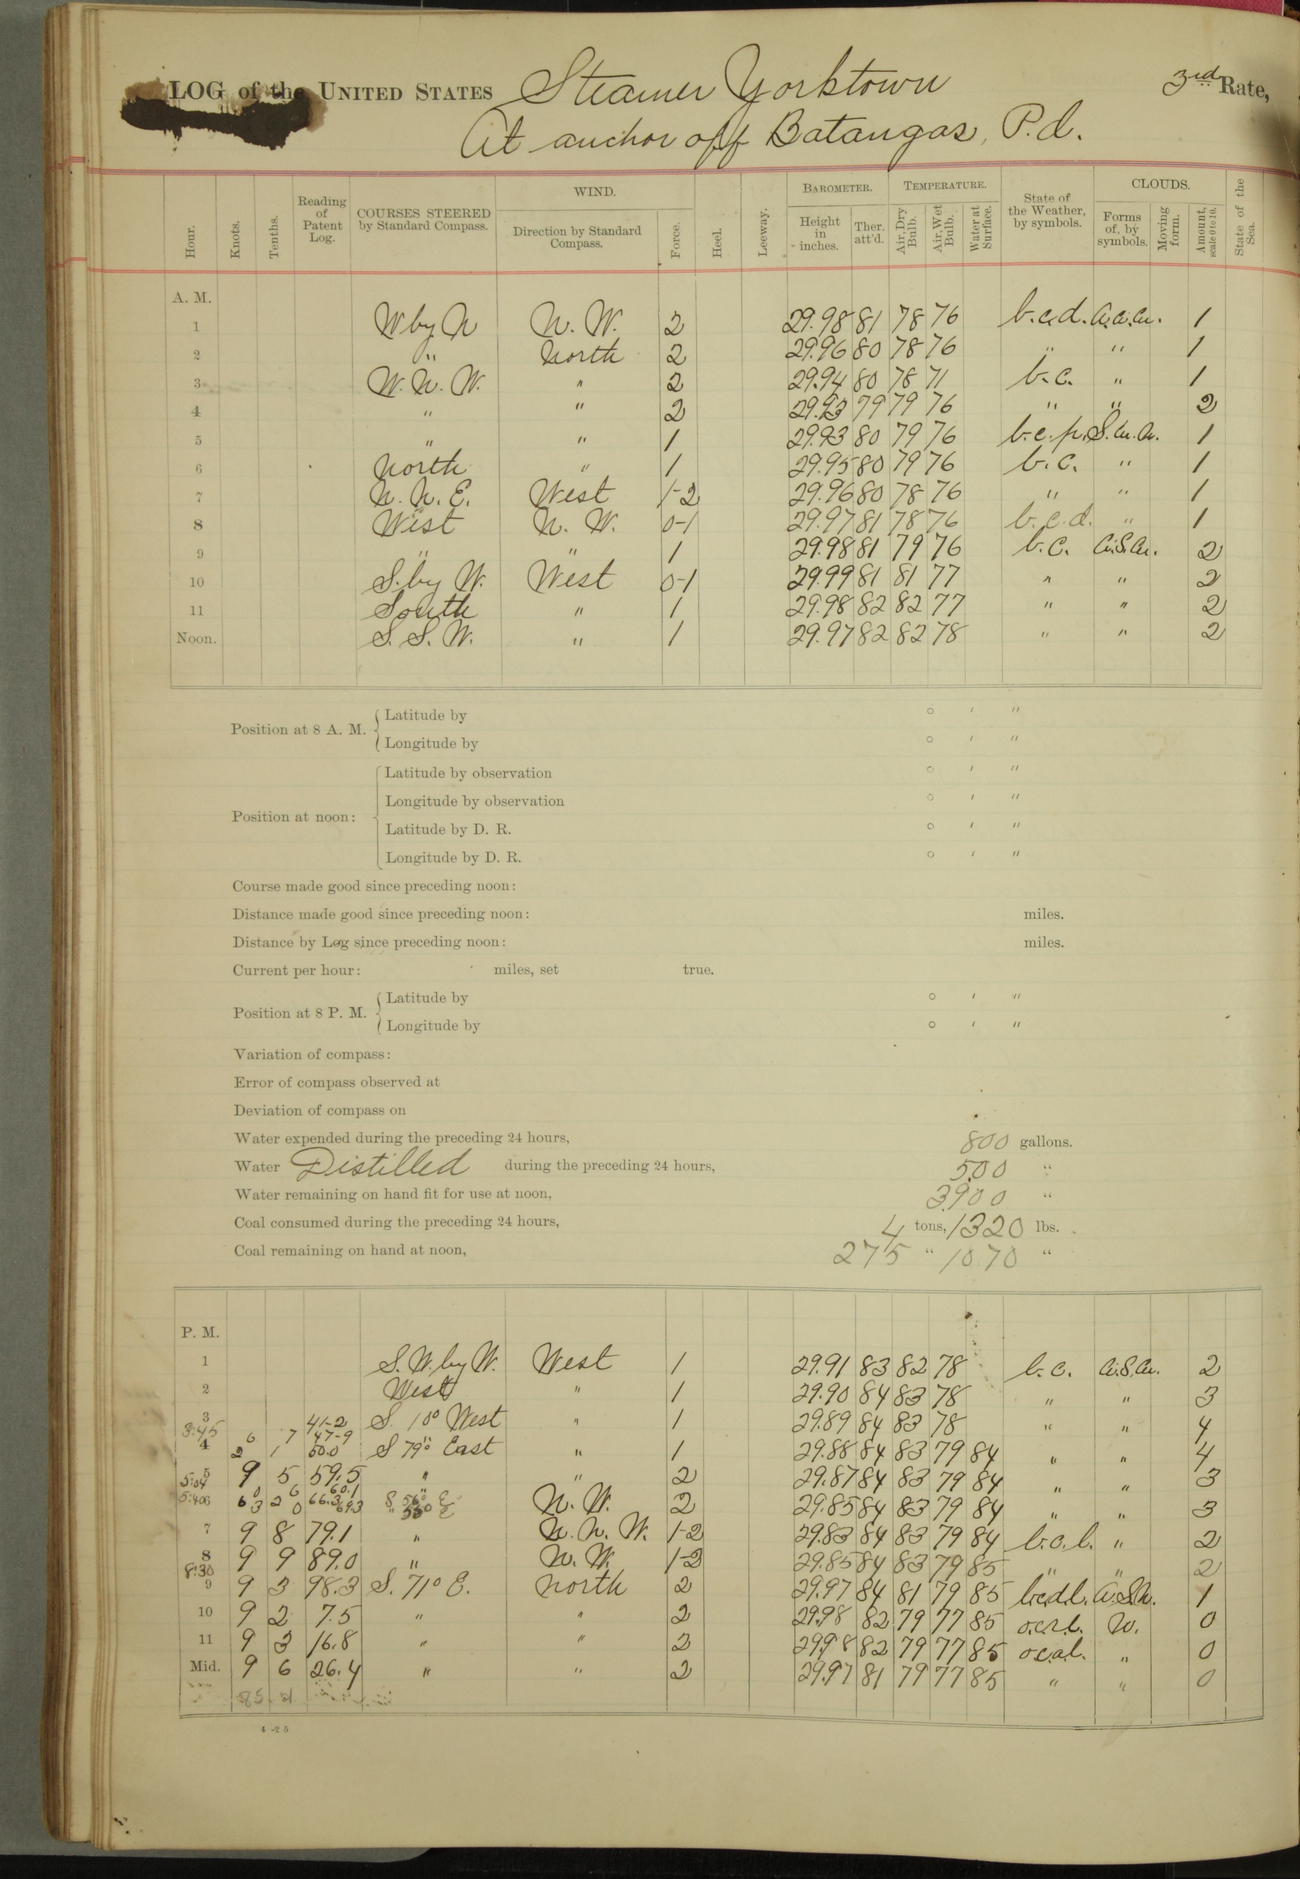 LOG of the UNITED STATES Steamer Yorktown 3rd Rate,
At anchor off Batangas, P.I.
Hour. Knots. Tenths. Reading of Patent Log. COURSES STEERED by Standard Compass. WIND. Direction by Standard Compass. Force. Heel. Leeway. BAROMETER. Height in inches. Ther. att'd. TEMPERATURE. Air, Dry Bulb. Air, Wet Bulb. Water at Surface. State of the Weather, by symbols. CLOUDS. Forms of, by symbols. Moving form. Amount, scale 0 to 10. State of the Sea.
A. M.
1 W by N N. W. 2 29.98 81 78 76 b.c.d. 1
2 " North 2 29.96 80 78 76 " " 1
3 W. N. W. " 2 29.94 80 78 71 b.c. " 1
4 " " 2 29.93 79 79 76 " " 2
5 " " 1 29.93 80 79 76 b.c.p. 1
6 North " 1 29.95 80 79 76 b.c. " 1
7 N. N. E. West 1-2 29.96 80 78 76 " " 1
8 West N. W. 0-1 29.97 81 78 76 b.c.d. " 1
9 " " 1 29.98 81 79 76 b.c. Ci.S.Cu. 2
10 S. by W. West 0-1 29.99 81 81 77 " " 2
11 South " 1 29.98 82 82 77 " " 2
Noon. S. S. W. " 1 29.97 82 82 78 " " 2
Position at 8 A. M. Latitude by ° ' "
Longitude by ° ' "
Position at noon: Latitude by observation ° ' "
Longitude by observation ° ' "
Latitude by D. R. ° ' "
Longitude by D. R. ° ' "
Course made good since preceding noon:
Distance made good since preceding noon: miles.
Distance by Log since preceding noon: miles.
Current per hour: miles, set true.
Position at 8 P. M. Latitude by ° ' "
Longitude by ° ' "
Variation of compass:
Error of compass observed at
Deviation of compass on
Water expended during the preceding 24 hours, 800 gallons.
Water Distilled during the preceding 24 hours, 500 "
Water remaining on hand fit for use at noon, 3900 "
Coal consumed during the preceding 24 hours, 4 tons, 1320 lbs.
Coal remaining on hand at noon, 275 " 1070 "
P. M.
1 S. W. by W. West 1 29.91 83 82 78 b.c. Ci.S.Cu. 2
2 West " 1 29.90 84 83 78 " " 3
3 41-2 S. 10° West " 1 29.89 84 83 78 " " 4
3:45 6 7 47-9
4 2 1 50.0 S 79° East " 1 29.88 84 83 79 84 " " 4
5 9 5 59.5 " " 2 29.87 84 83 79 84 " " 3
5:04 0 6 60.1 "
6 3 0 69.3 N. W. 2 29.85 84 83 79 84 " " 3
7 9 8 79.1 " N. N. W. 1-2 29.83 84 83 79 84 b.c.l. " 2
8 9 9 89.0 " N. W. 1-2 29.85 84 83 79 85 " " 2
8:30
9 9 3 98.3 S. 71° E. North 2 29.97 84 81 79 85 b.c.d.l. 1
10 9 2 7.5 " " 2 29.98 82 79 77 85 N. 0
11 9 3 16.8 " " 2 29.98 82 79 77 85 " 0
Mid. 9 6 26.4 " " 2 29.97 81 79 77 85 " " 0
4-25